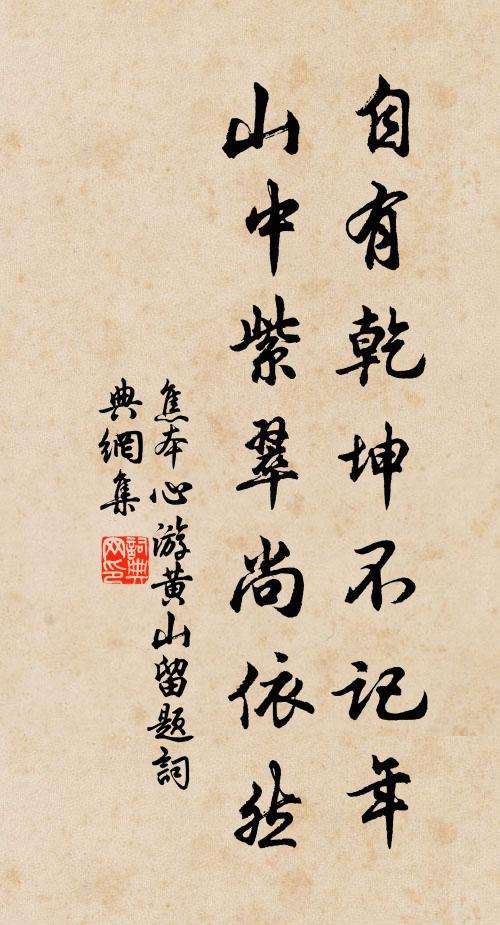 自有乾坤不记年
山中紫翠尚依然
焦本心游黄山留题词
典網集
詞典网印